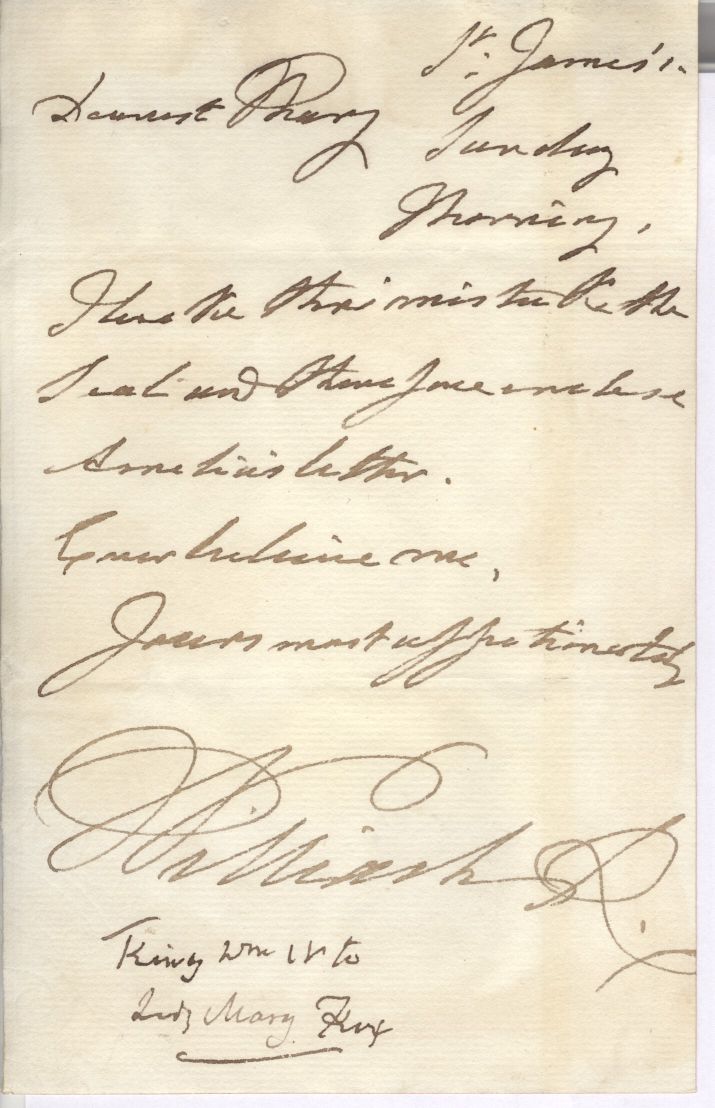 St. James's.
Dearest Mary Sunday
Morning,
I have the this mistake the
Seal and therefore enclose
Amelia's letter.
Ever believe me,
Yours most affectionately
William R.
King Wm IV to
Lady Mary Fox